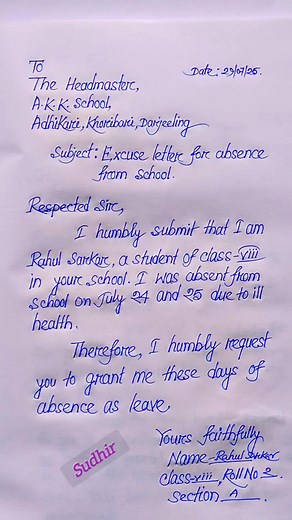 To
Date: 29/07/25.
The Headmaster,
A.K.K. School,
Adhikari, Khoribari, Darjeeling
Subject: Excuse letter for absence
from school.
Respected Sir,
I humbly submit that I am
Rahul Sarkar, a student of class-viii
in your school. I was absent from
school on July 24 and 25 due to ill
health.
Therefore, I humbly request
you to grant me these days of
absence as leave.
Yours faithfully
Name - Rahul Sarkar
class-viii, Roll No 2.
section A.
Sudhir